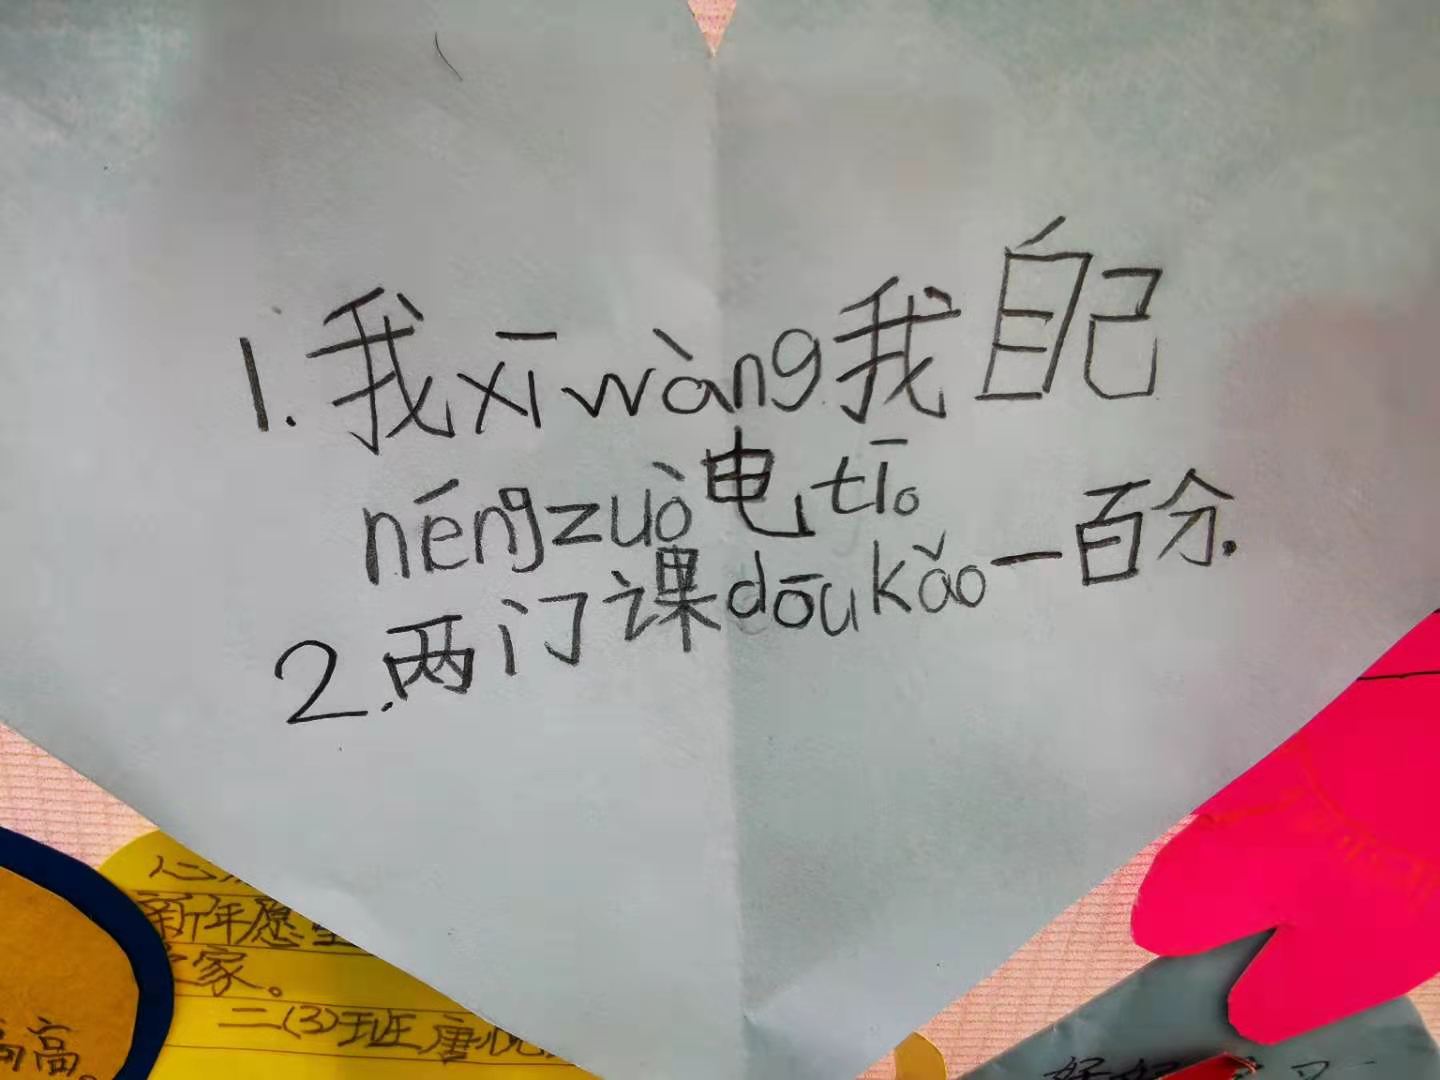 1.我xī wàng我自己
néngzuò电tī。
2.两门课dōukǎo一百分.
新年愿望
家。
二(3)班唐悦
高高。
好好